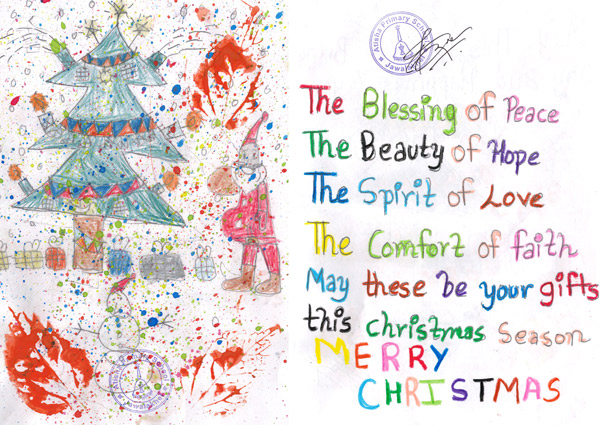 Atisha Primary School
Jawalakhel
The Blessing of Peace
The Beauty of Hope
The Spirit of Love
The Comfort of faith
May these be your gifts
this christmas season
MERRY
CHRISTMAS